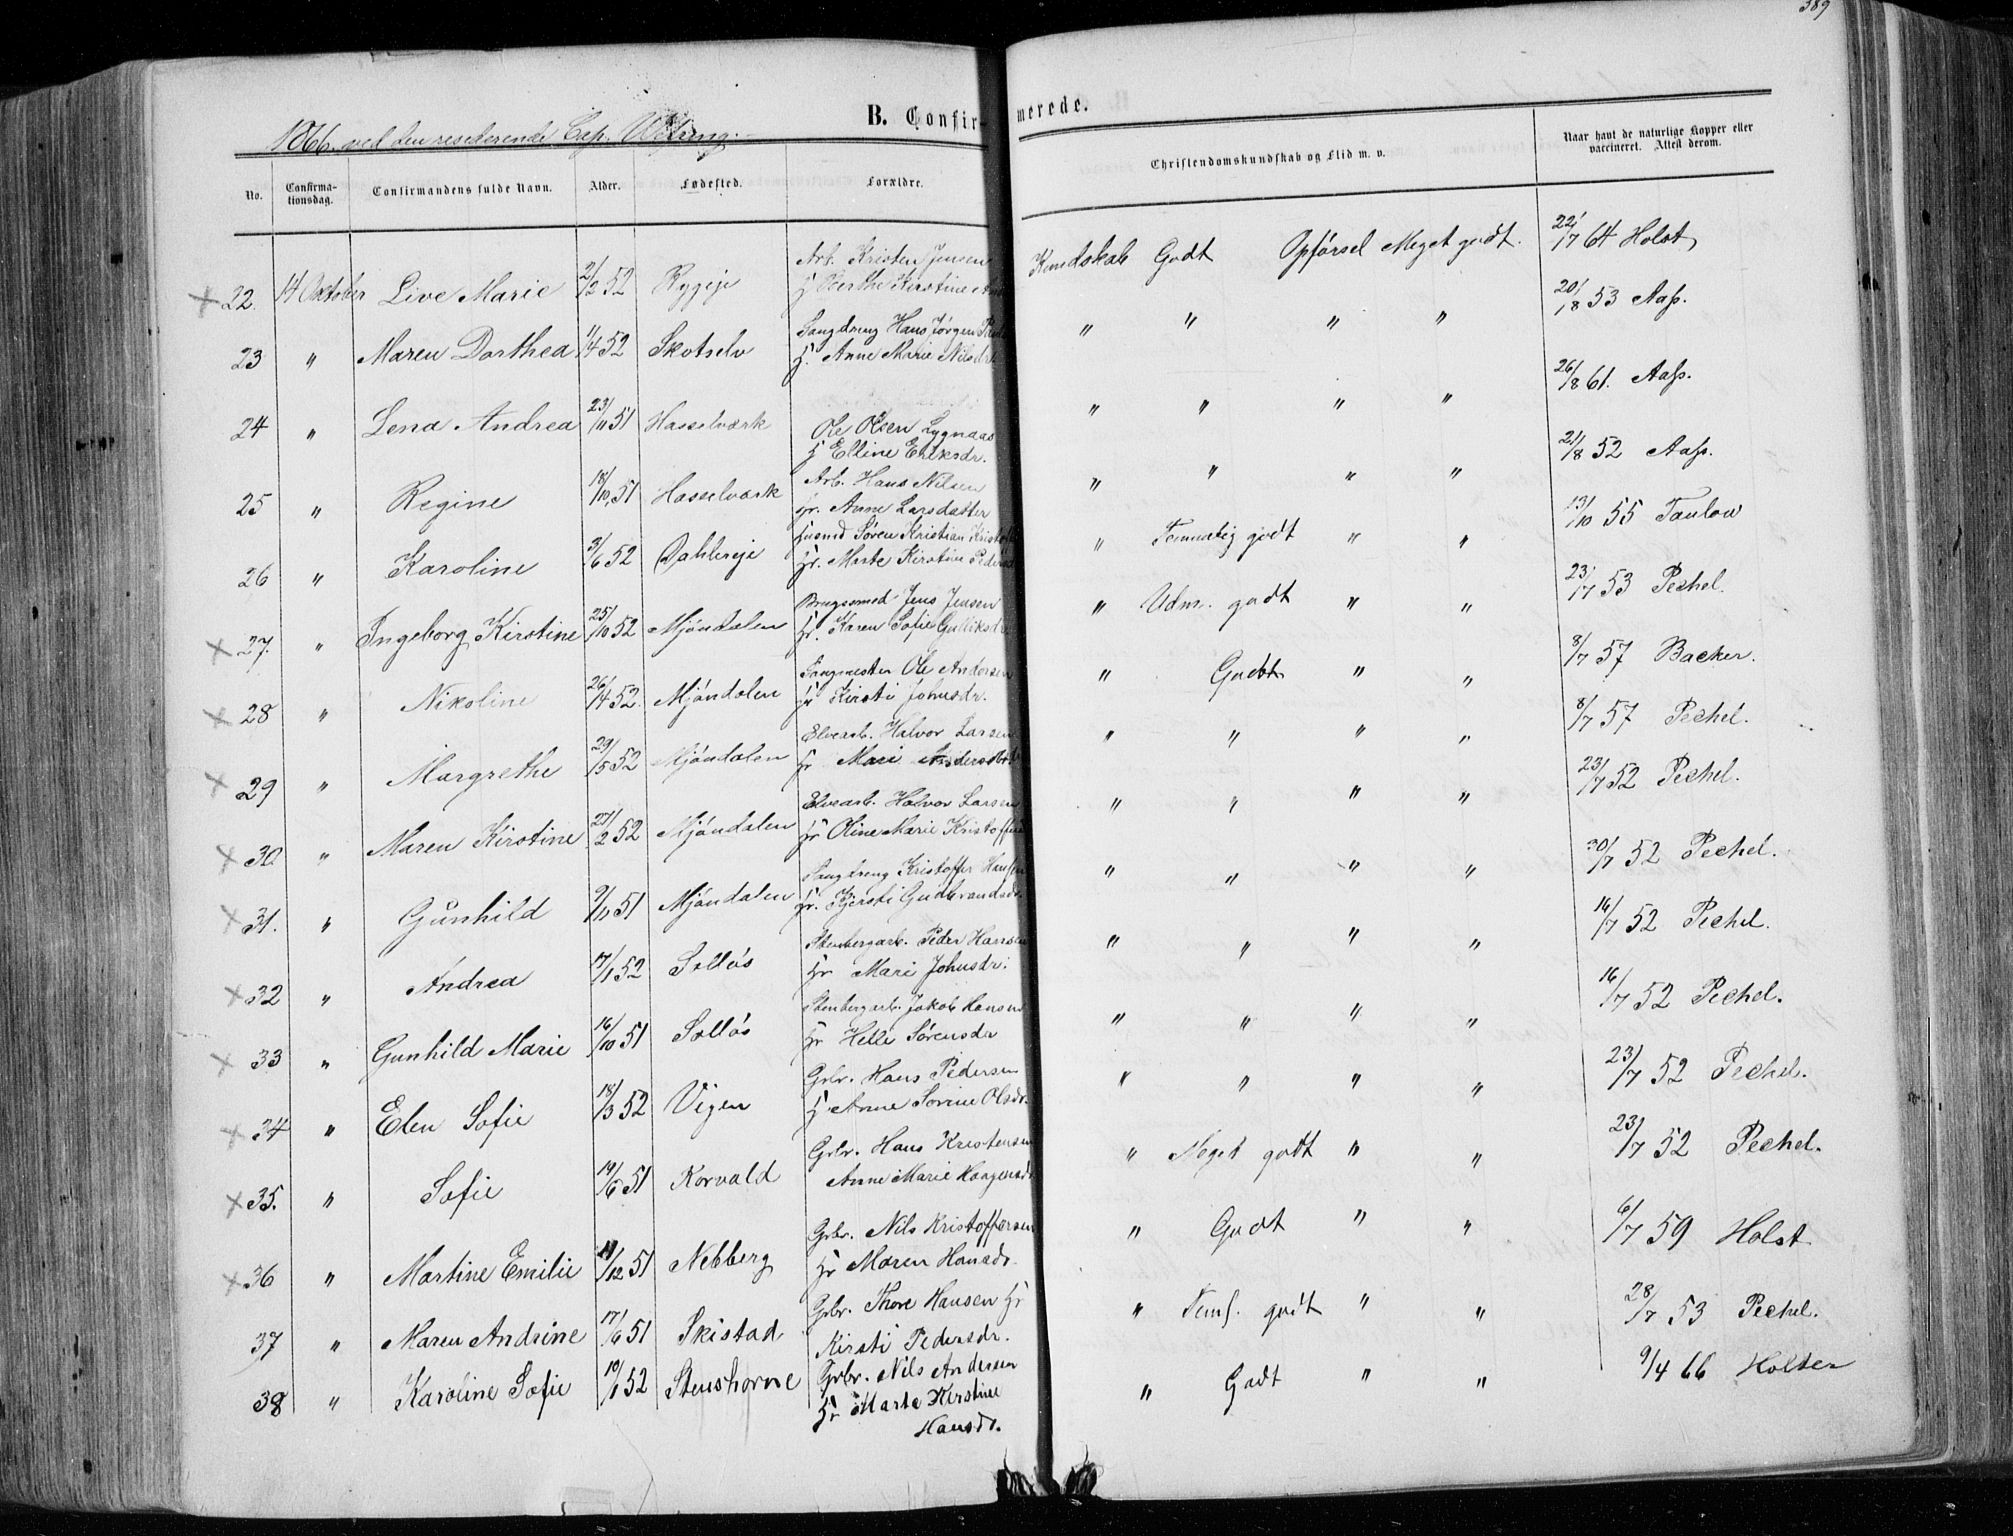 389
B. Confirmerede.
1866. ved den residerende Cap.
No. Confirmationsdag. Confirmandens fulde Navn. Alder. Fødested. Forældre. Christendomskundskab og Flid m. v. Naar havt de naturlige Kopper eller vaccineret. Attest derom.
Arb. Kristen Jensen
22. 14 Oktober Live Marie 2/2 52 Rygeje Hr Berthe Kirstine Kundskab Godt Opførsel Meget godt. 22/7 64 Holst
Saugdreng Hans Jørgen
23 " Maren Dorthea 11/4 52 Skotselv Hr. Anne Marie Nilsdr. " " " " 20/8 53 Aass.
Ole Olsen Lygnaas
24 " Lena Andrea 23/11 51 Hasselværk Hr Elline Eriksdr. " " " " 26/8 61. Aass.
Arb. Hans Nilsen
25 " Regine 18/10 51 Hasselværk Hr. Anne Larsdatter " " " " 21/8 52 Aass.
Husmd Søren Kristian
26 " Karoline 3/6 52 Dahlereje Hr. Marte Kirstine " Temmelig godt " " 13/10 55 Taulow
Brugssmed Jens Jensen
27. " Ingeborg Kirstine 25/10 52 Mjøndalen Hr. Karen Sofie Gulliksdr " Udm. godt " " 23/7 53 Pechel.
Saugmester Ole Andersen
28 " Nikoline 26/4 52. Mjøndalen Hr Kirsti Johnsdr. " Godt " " 8/7 57 Backer.
Elvearb. Halvor Larsen
29 " Margrethe 29/5 52 Mjøndalen Hr Mari Andersdtr " " " " 8/7 57 Pechel.
Elvearb. Halvor Larsen
30 " Maren Kirstine 27/2 52 Mjøndalen Hr Oline Marie " " " " 23/7 52 Pechel.
Saugdreng Kristoffer Hansen
31. " Gunhild 9/11 51 Mjøndalen Hr. Kjersti Gudbrandsdr. " " " " 30/7 52 Pechel.
Stenbergarb. Peder Hansen
32 " Andrea 17/1 52 Solløs Hr Mari Johnsdr. " " " " 16/7 52 Pechel.
Stenbergarb. Jakob Hansen
33 " Gunhild Marie 16/10 51 Solløs Hr Helle Sørensdr " " " " 16/7 52 Pechel.
Grbr. Hans Pedersen
34 " Elen Sofie 18/3 52 Vigen Hr Anne Sørine Olsdr. " " " " 23/7 52 Pechel.
Grbr. Hans Kristensen
35. " Sofie 19/6 51 Korvald Anne Marie Haagensdr " Meget godt " " 23/7 52 Pechel.
Grbr. Nils Kristoffersen
36 " Martine Emilie 11/12 51 Nebberg Hr Maren Hansdr. " Godt " " 6/7 59 Holst
Grbr. Thore Hansen Hr
37 " Maren Andrine 17/6 51 Skistad Kirsti Pedersdr. " Teml. godt " " 28/7 53 Pechel.
Grbr. Nils Andersen
38 " Karoline Sofie 10/1 52 Stenshorne Hr Marte Kirstine " Godt " " 9/4 66 Holter
Hansdr.